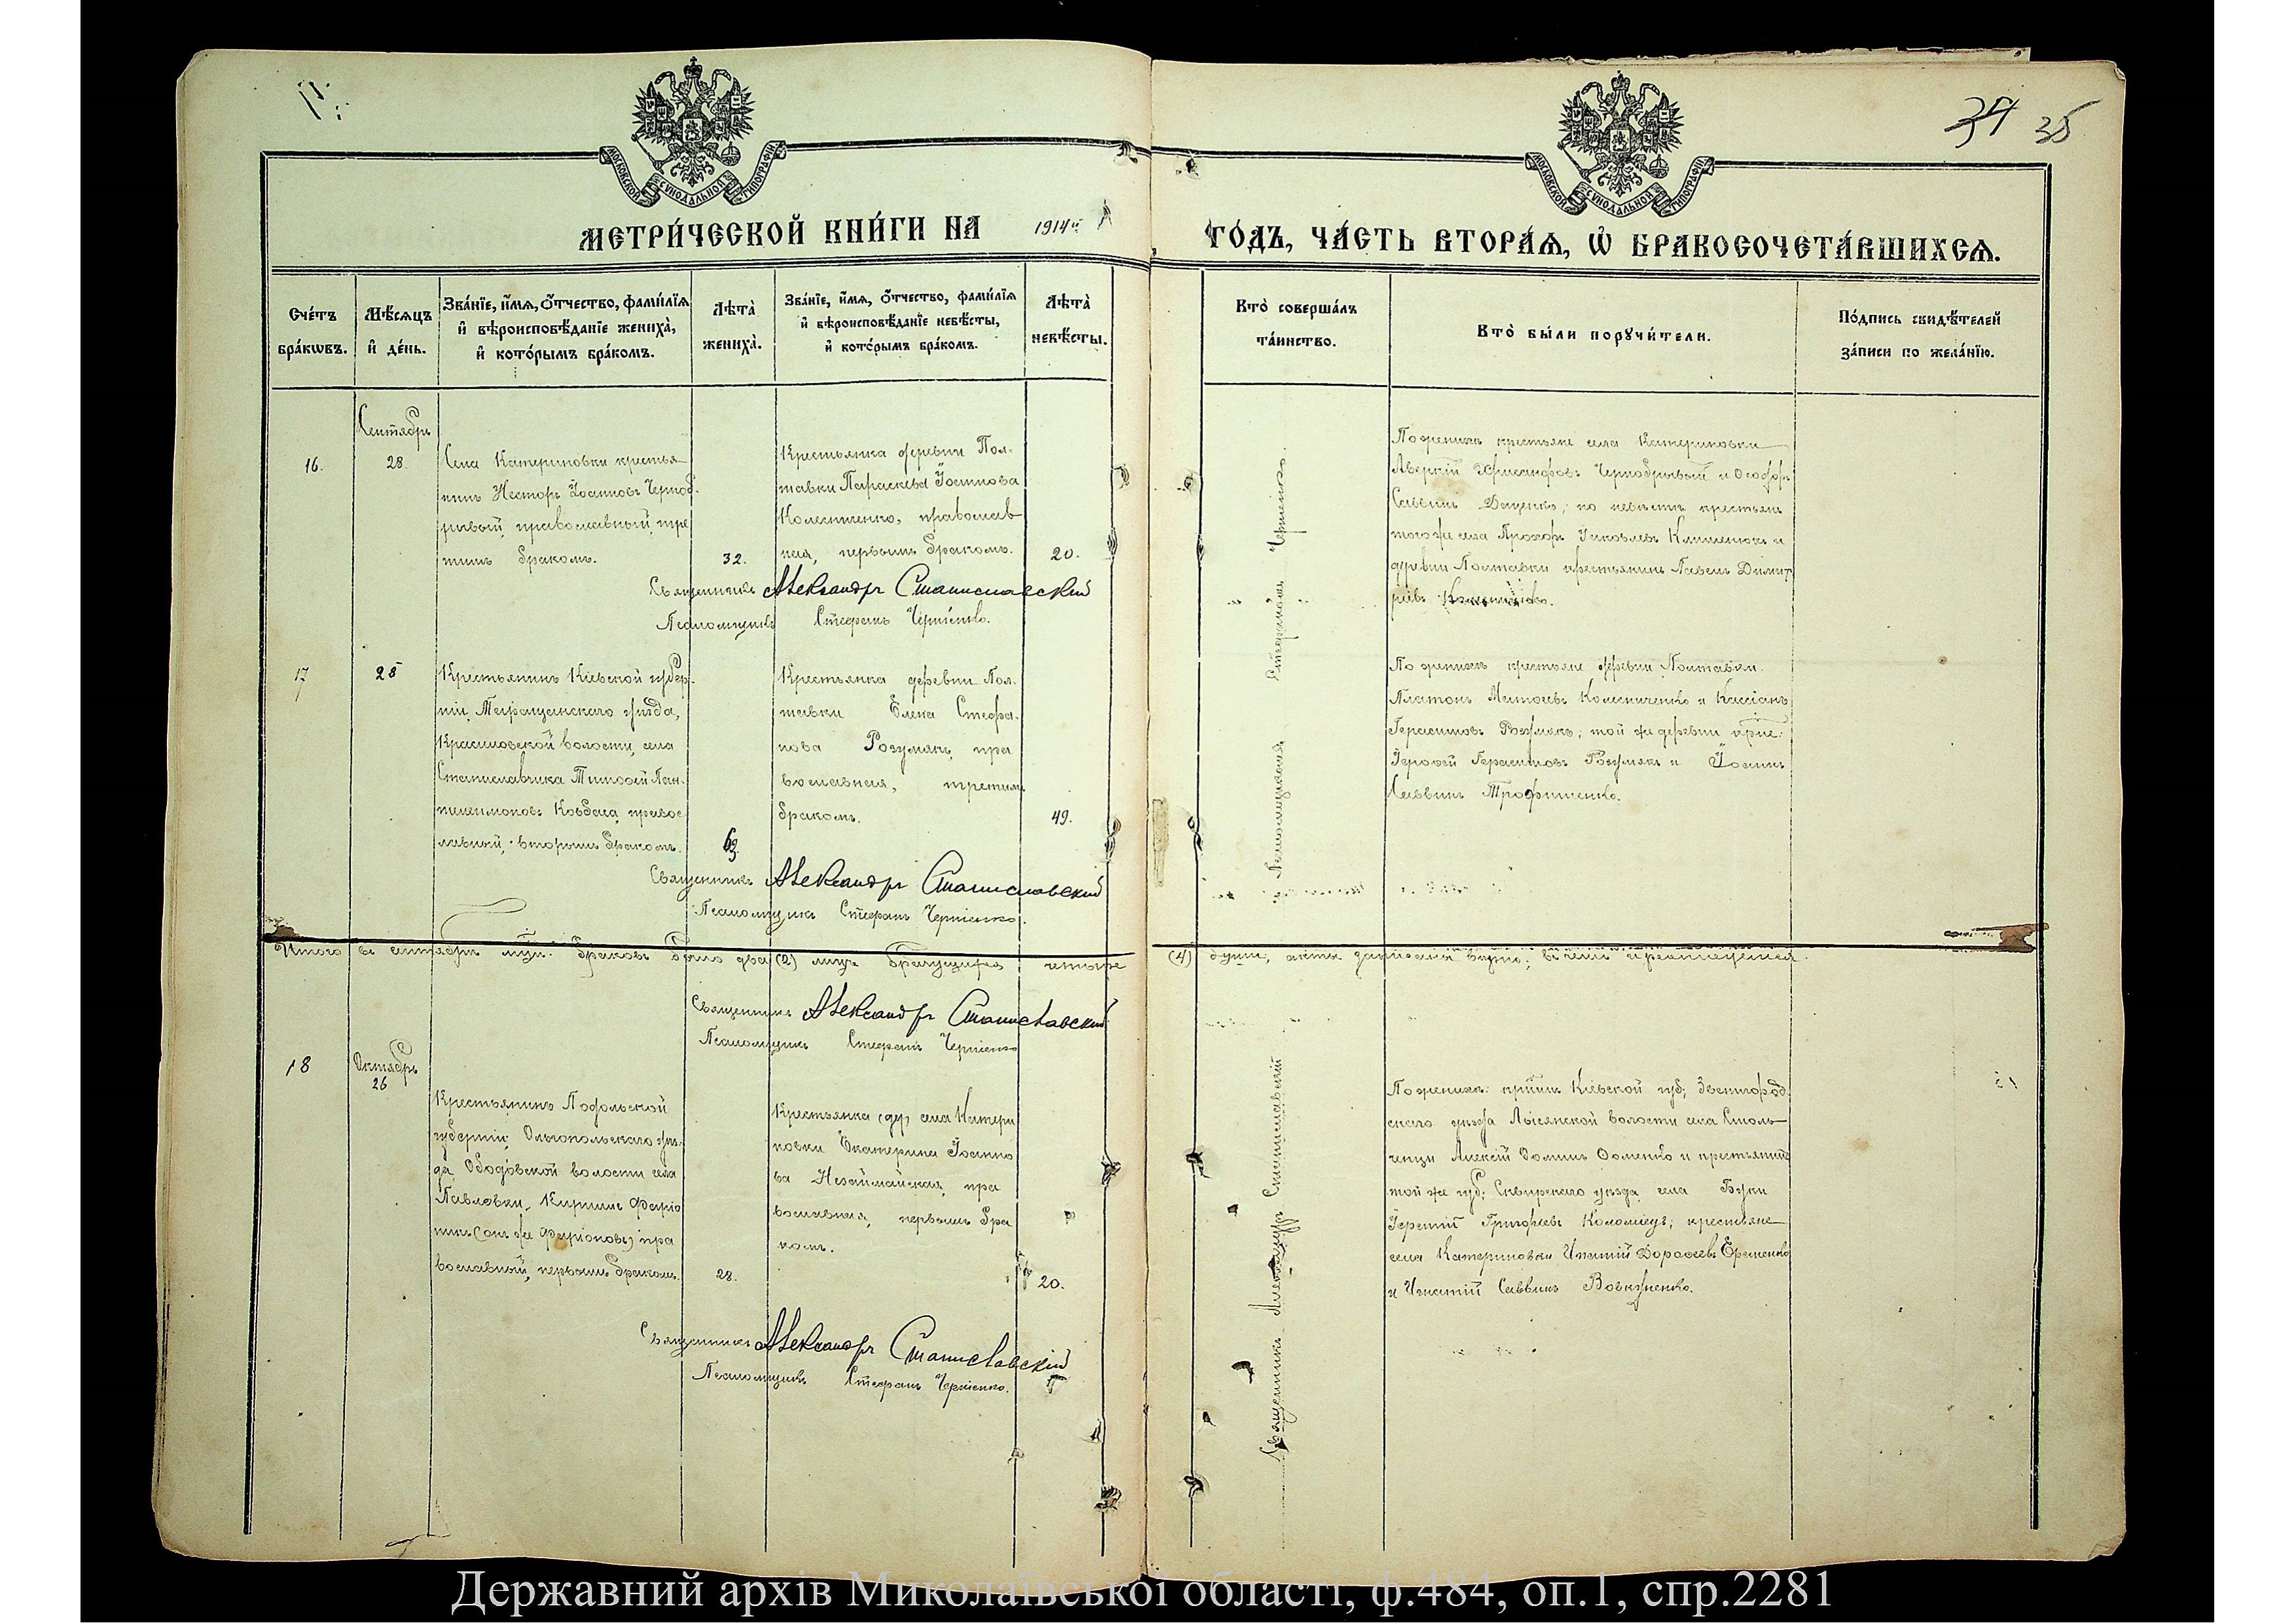 34 35
МОСКОВСКОЙ СѴНОДАЛЬНОЙ ТИПОГРАФІИ
МОСКОВСКОЙ СѴНОДАЛЬНОЙ ТИПОГРАФІИ
МЕТРИ́ЧЕСКОЙ КНИ́ГИ НА 1914й ГО́ДЪ, ЧА́СТЬ ВТОРА́Ѧ, Ѿ БРАКОСОЧЕТА́ВШИХСѦ.
Сче́тъ бра́кѡвъ.
Мѣ́сѧцъ и҆ де́нь.
Зва́нїе, и҆́мѧ, ѻ҆́тчество, фами́лїѧ и҆ вѣроисповѣ́данїе жениха̀, и҆ кото́рымъ бра́комъ.
Лѣта̀ жениха̀.
Зва́нїе, и҆́мѧ, ѻ҆́тчество, фами́лїѧ и҆ вѣроисповѣ́данїе невѣ́сты, и҆ кото́рымъ бра́комъ.
Лѣта̀ невѣ́сты.
Кто̀ соверша́лъ та́инство.
Кто̀ бы́ли порꙋчи́тели.
По́дпись свидѣ́телей за́писи по жела́нїю.
16.
Сентябрь
28.
Села Катериновки крестья
нинъ Несторъ Іоанновъ Черноб
ривый, православный, тре
тимъ бракомъ.
32.
Крестьянка деревни Пол
тавки Параскева Іоаннова
Колесниченко, православ
ная, первымъ бракомъ.
20.
По женихѣ крестьяне села Катериновки
Аверкій Хрисанфовъ Чернобривый и Ѳеодоръ
Саввинъ Даценко; по невѣстѣ крестьяне
тогоже села Прохоръ Іаковлевъ Клименюкъ и
деревни Полтавки крестьянинъ Павелъ Димит
ріевъ
Священникъ Александръ Станиславскій
Псаломщикъ Стефанъ Черненко.
17
28
Крестьянинъ Кіевской губер
ніи, Таращанскаго уѣзда,
Красиловской волости, села
Станиславчика Тимофей Пан
телеимоновъ Ковбаса, правос
лавный, вторымъ бракомъ.
Крестьянка деревни Пол
тавки Елена Стефа
нова Розумякъ, пра
вославная, третимъ
бракомъ.
49.
По женихѣ крестьяне деревни Полтавки
Платонъ Матѳеевъ Колесниченко и Кассіанъ
Герасимовъ Розумякъ; той же деревни крне.
Іероѳей Герасимовъ Розумякъ и Іоаннъ
Саввинъ Трофименко.
Священникъ Александръ Станиславскій
Псаломщикъ Стефанъ Черненко.
Псаломщикомъ Стефаномъ Черненко.
Итого въ сентябрѣ мцѣ браковъ было два (2) лицъ брачущихся четыре (4) души, акты записаны вѣрно; въ чемъ и
Священникъ Александръ Станиславскій
Псаломщикъ Стефанъ Черненко
18
Октябрь
26
Крестьянинъ Подольской
губерніи, Ольгопольскаго уѣз
да, Ободовской волости села
Павловки, Кириллъ Фаріо
никъ (онъ же Фаріоновъ) пра
вославный, первымъ бракомъ.
28.
Крестьянка (дѣ) села Катери
новки Екатерина Іоанно
ва Незаймайская, пра
вославная, первымъ бра
комъ.
20.
По женихѣ: крнинъ Кіевской губ; Звенигород
скаго уѣзда Лысянской волости села
Алексій Фоминъ Фоменко и крестьянинъ
той же губ; Сквирскаго уѣзда, села Буки
Іеремій Григорьевъ Коломіецъ; крестьяне
села Катериновки Ипатій Дороѳеевъ Еременко
и Игнатій Саввинъ
Священникъ Александръ Станиславскій
Псаломщикъ Стефанъ Черненко.
Священникъ Александръ Станиславскій
Державний архів Миколаївської області, ф.484, оп.1, спр.2281